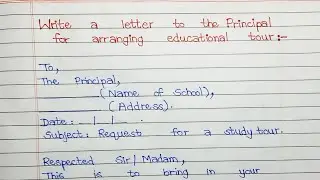 Write a letter to the Principal
for arranging educational tour:-
To,
The Principal,
________ (Name of School),
________ (Address).
Date: __/__/__.
Subject: Request for a study tour.
Respected Sir/Madam,
This is to bring in your